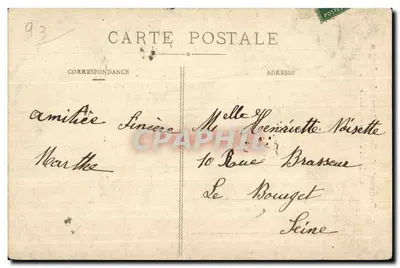 93
CARTE POSTALE
CORRESPONDANCE
ADRESSE
amitiée Sincère
Marthe
Melle Henriette Noisette
10 Rue Brasseur
Le Bourget
Seine
CPAPHIL